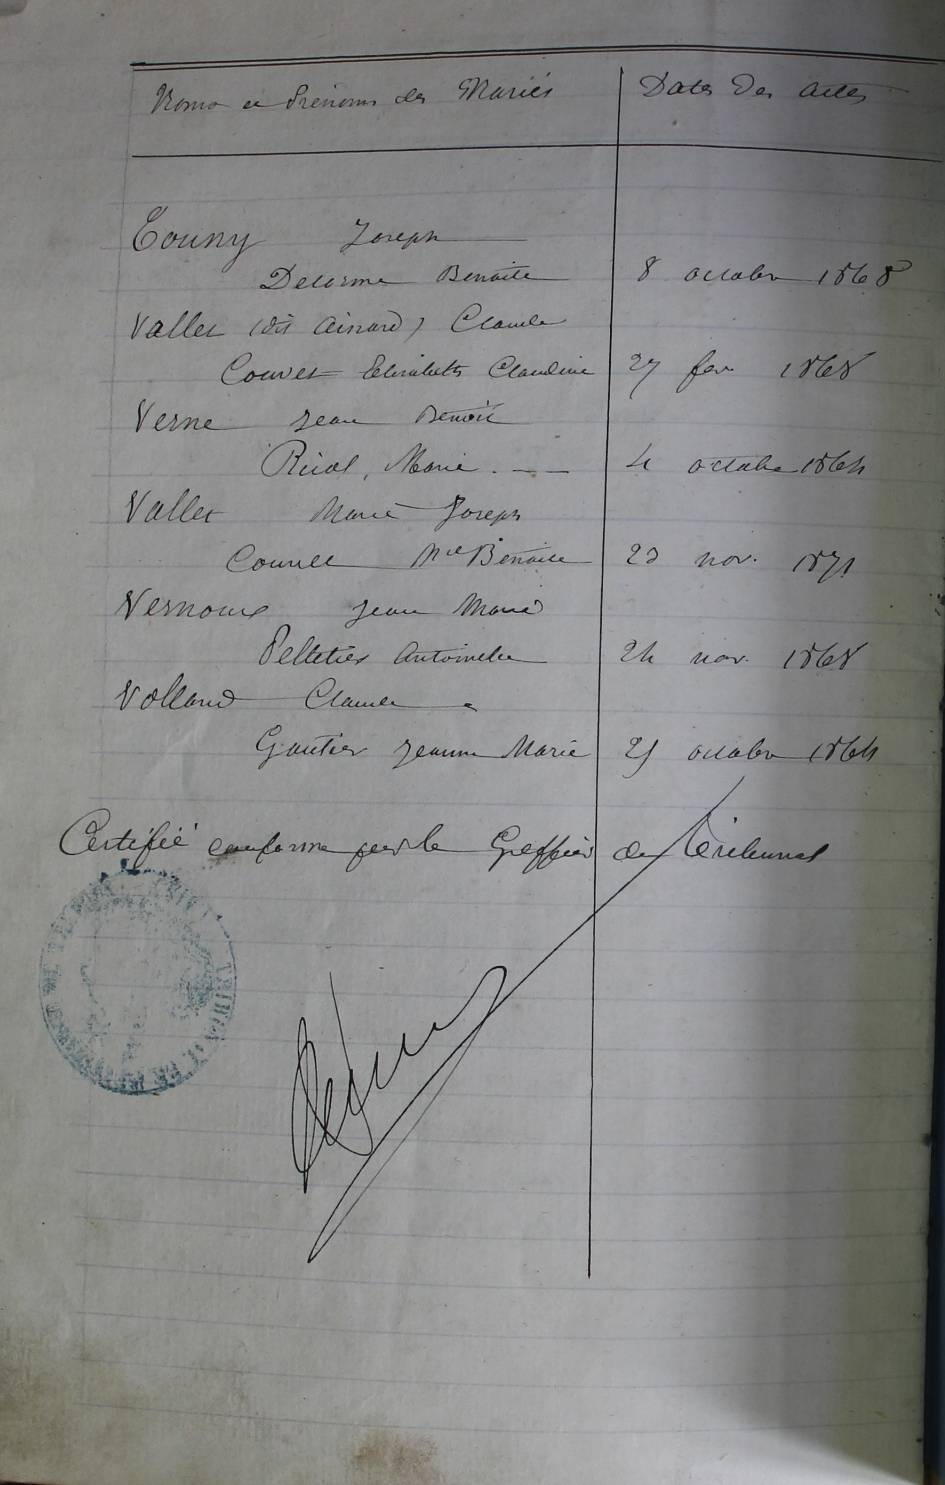 Noms et Prénoms des Mariés Dates des actes
Touny Joseph
Delorme Benoite 8 octobre 1868
Vallet (dit Ainard) Claude
Couvet Elisabeth Claudine 27 fev 1868
Verne Jean Benoit
Rival, Marie 4 octobre 1864
Vallet Marie Joseph
Couvet Mie Benoite 23 nov. 1871
Vernoux Jean Marie
Pelletier Antoinette 24 nov. 1868
Volland Claude
Gautier Jeanne Marie 25 octobre 1864
Certifié conforme par le Greffier du Tribunal